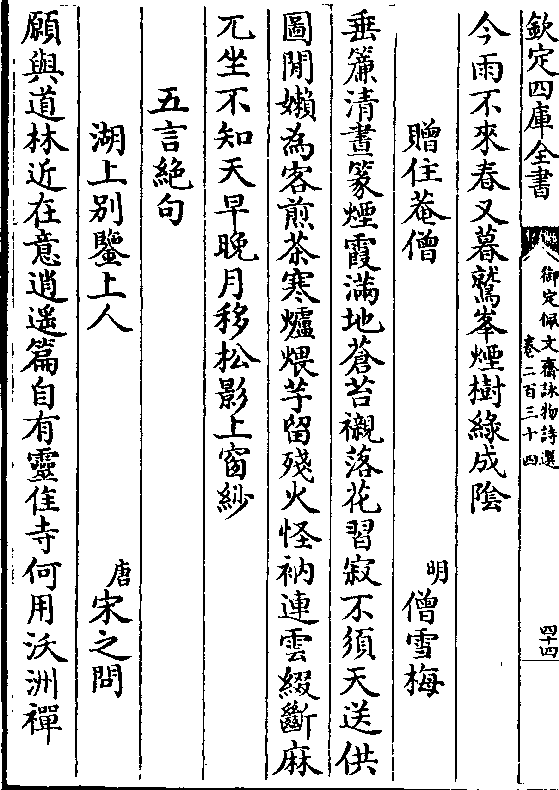 欽定四庫全書
御定佩文齋詠物詩選
卷二百三十四
四十四
今雨不來春又暮鷲峯煙樹綠成陰
贈住菴僧
明
僧雪梅
垂簾清晝篆煙霞滿地蒼苔襯落花習寂不須天送供
圖閒嬾為客煎茶寒爐煨芋留殘火怪衲連雲綴斷麻
兀坐不知天早晚月移松影上窗紗
五言絶句
湖上别鑒上人
唐
宋之問
願與道林近在意逍遥篇自有靈隹寺何用沃洲禪